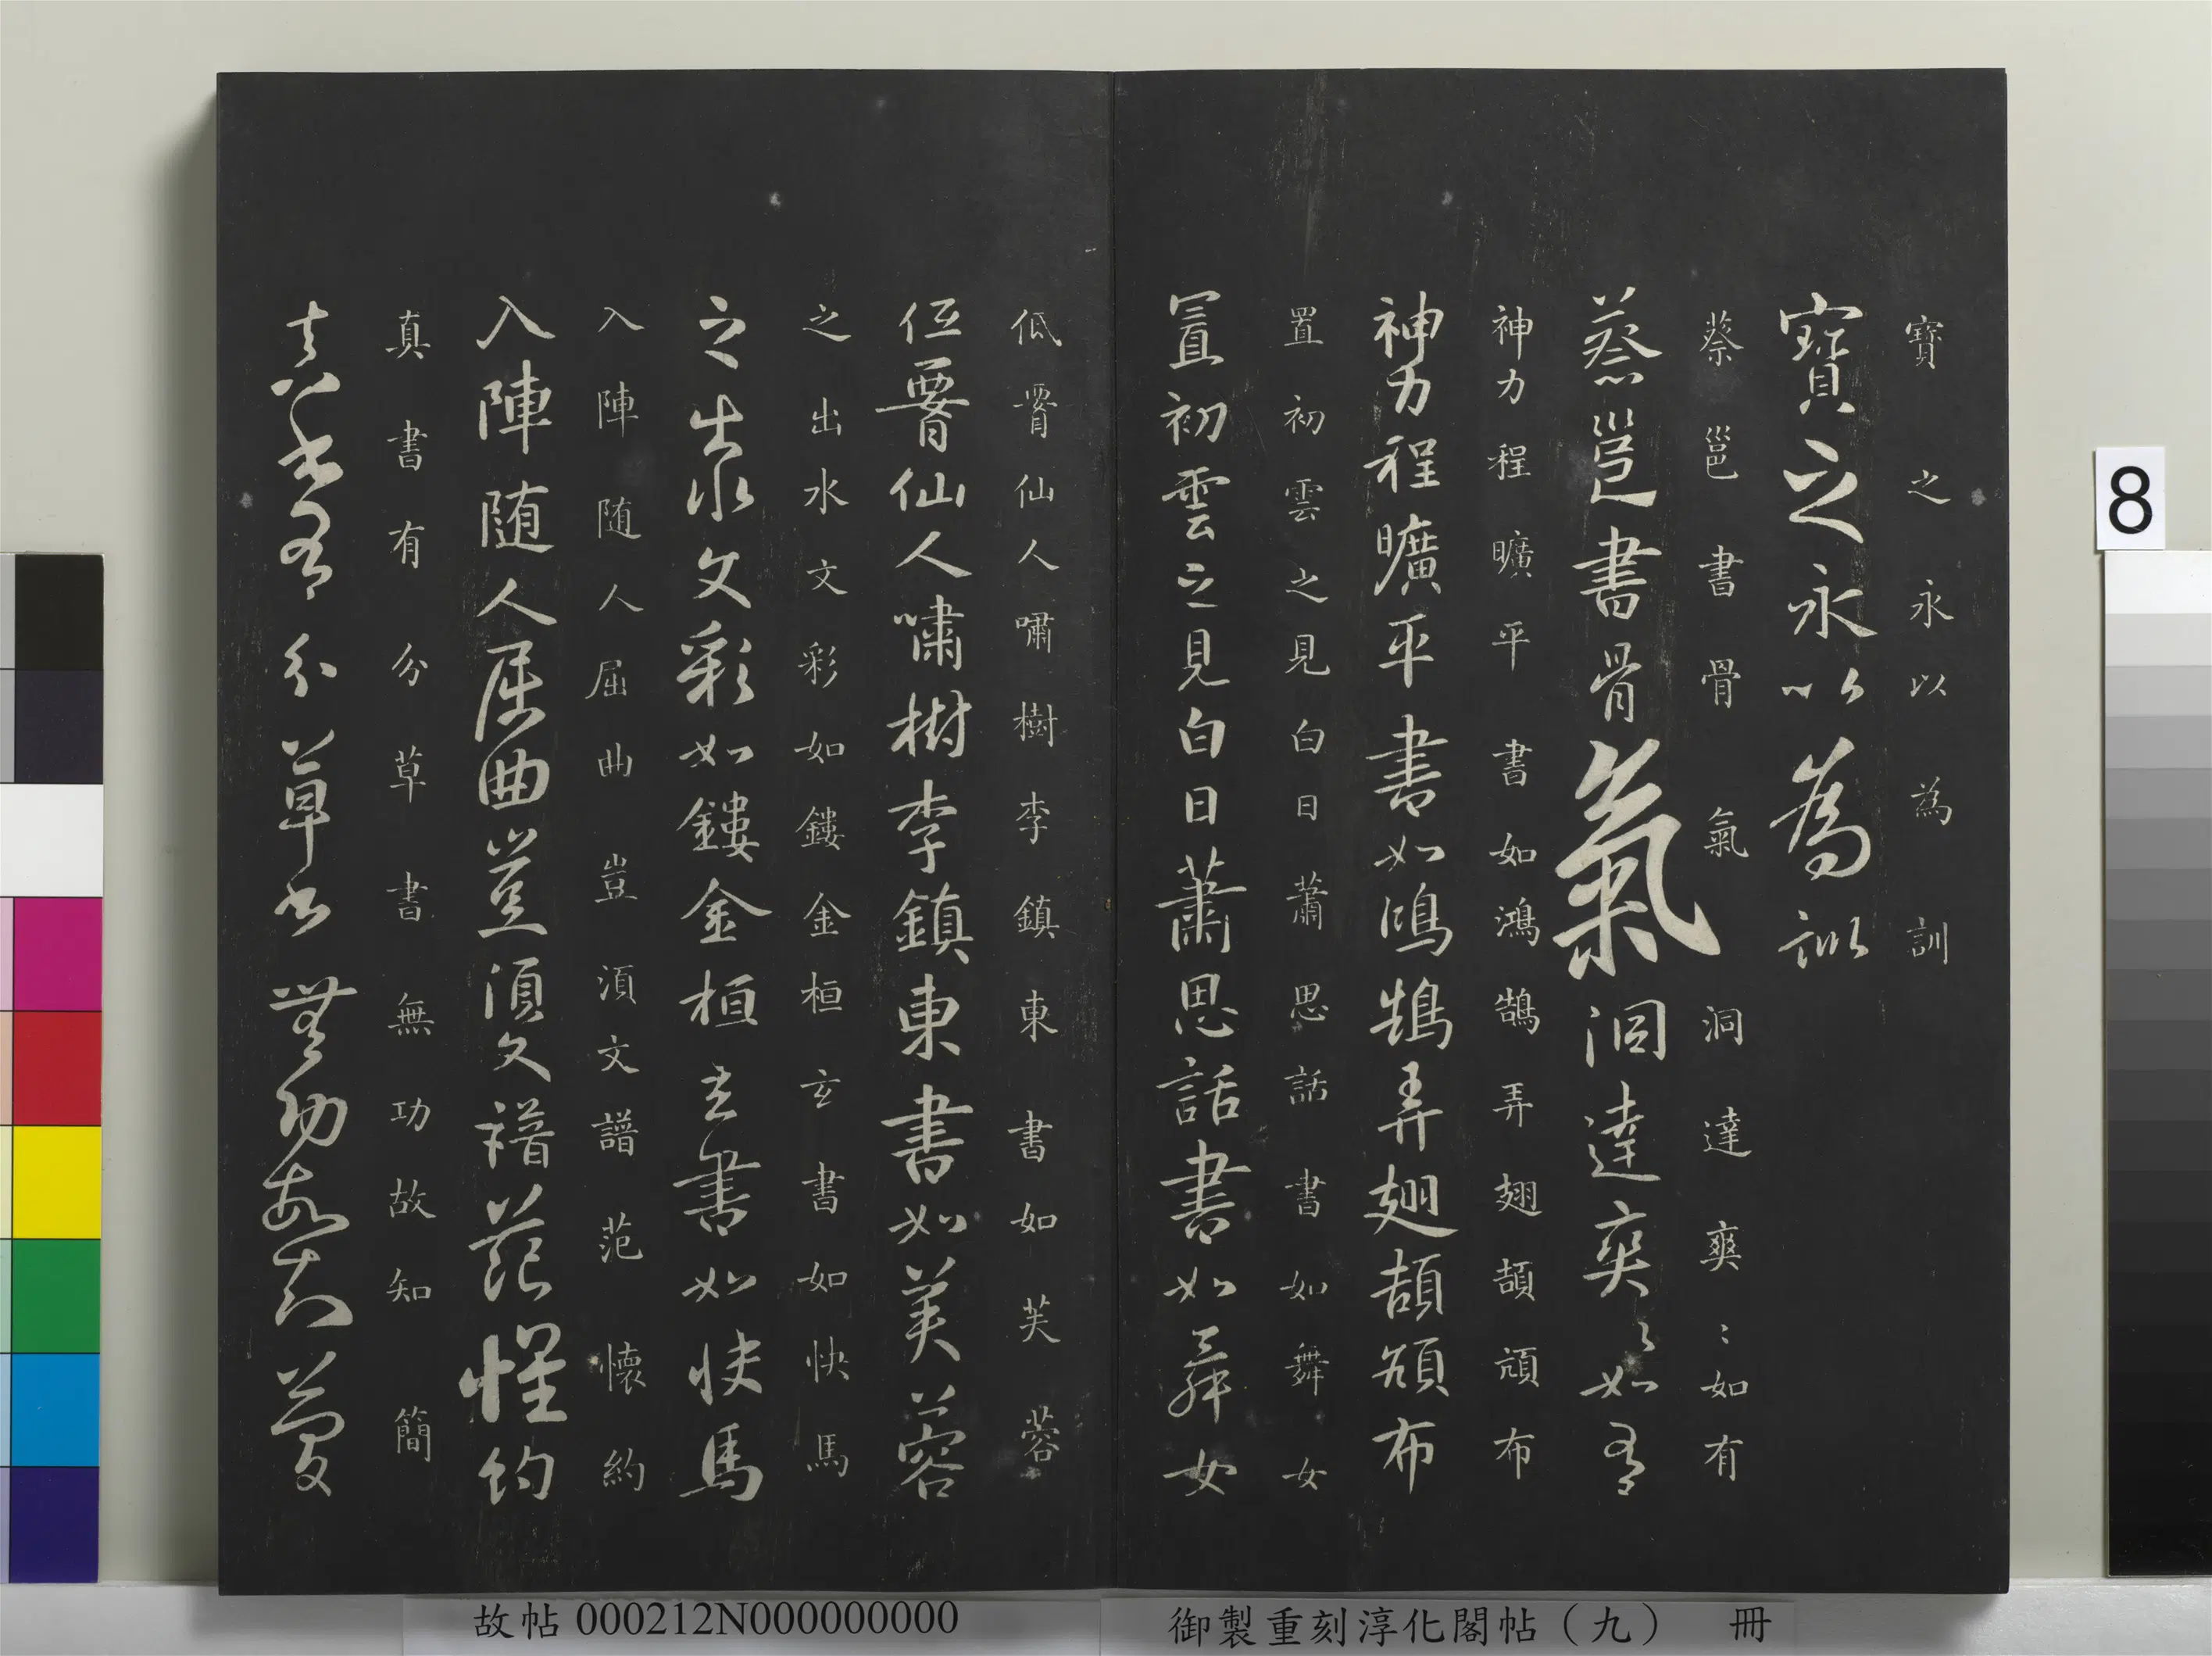 寶之永以為訓
寶之永以為訓
蔡邕書骨氣洞達爽〻如有
蔡邕書骨氣洞達爽〻如有
神力程曠平書如鴻鵠弄翅頡頏布
神力程曠平書如鴻鵠弄翅頡頏布
置初雲之見白日蕭思話書如舞女
置初雲之見白日蕭思話書如舞女
低霄仙人嘯樹李鎮東書如芙蓉
低霄仙人嘯樹李鎮東書如芙蓉
之出水文彩如鏤金桓玄書如快馬
之出水文彩如鏤金桓玄書如快馬
入陣随人屈曲豈湏文譜范懷約
入陣随人屈曲豈湏文譜范懷約
真書有分草書無功故知簡
真書有分草書無功故知簡
8
故帖000212N000000000
御製重刻淳化閣帖（九） 冊